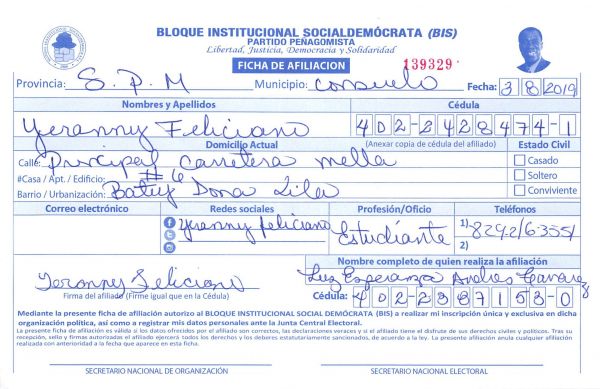 BLOQUE INSTITUCIONAL SOCIALDEMÓCRATA (BIS)
PARTIDO PEÑAGOMISTA
Libertad, Justicia, Democracia y Solidaridad
FICHA DE AFILIACION 139329
Provincia: S.P.M Municipio: Consuelo Fecha: 3 8 2019
Nombres y Apellidos Cédula
Yeranny Feliciano 402-2428474-1
Domicilio Actual (Anexar copia de cédula del afiliado) Estado Civil
Calle: Principal carretera mella Casado
#Casa / Apt. / Edificio: #6 Soltero
Barrio / Urbanización: Batey Dona Lila Conviviente
Correo electrónico Redes sociales Profesión/Oficio Teléfonos
yeranny feliciano Estudiante 1)
2)
Nombre completo de quien realiza la afiliación
Yeranny Feliciano Luz Esperanza Andres Tavarez
Firma del afiliado (Firme igual que en la Cédula) Cédula: 402-2987153-0
Mediante la presente ficha de afiliación autorizo al BLOQUE INSTITUCIONAL SOCIAL DEMÓCRATA (BIS) a realizar mi inscripción única y exclusiva en dicha
organización política, así como a registrar mis datos personales ante la Junta Central Electoral.
La presente ficha de afiliación es válida si los datos ofrecidos por el afiliado son correctos, las declaraciones veraces y si el afiliado tiene el disfrute de sus derechos civiles y políticos. Tras su
recepción, sello y firmas autorizadas el afiliado ejercerá todos los derechos y los deberes estatutariamente sancionados, de acuerdo a la ley. La presente afiliación anula cualquier afiliación
realizada con anterioridad a la fecha que aparece en esta ficha.
SECRETARIO NACIONAL DE ORGANIZACIÓN SECRETARIO NACIONAL ELECTORAL